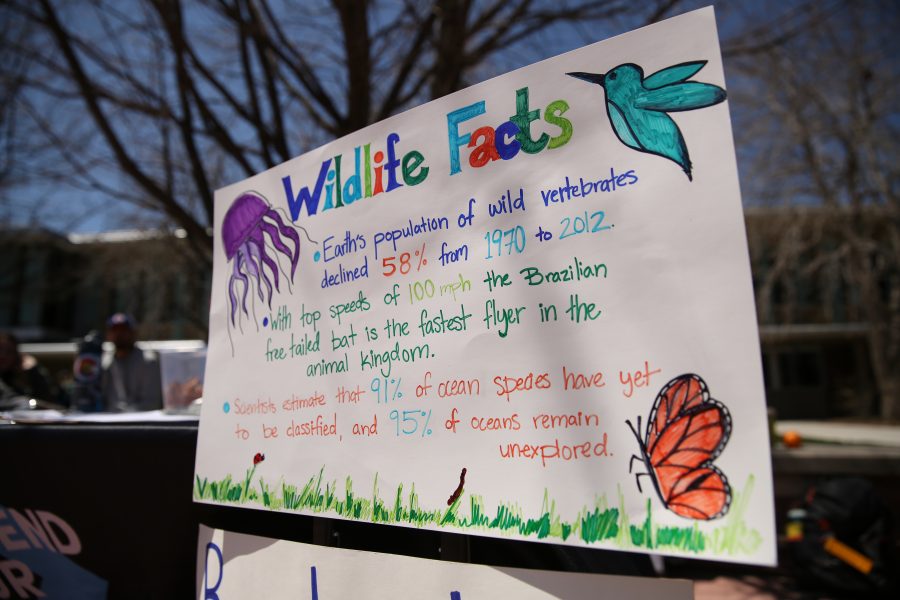 Wildlife Facts
• Earth's population of wild vertebrates
declined 58% from 1970 to 2012.
• With top speeds of 100 mph the Brazilian
free tailed bat is the fastest flyer in the
animal kingdom.
• Scientists estimate that 91% of ocean species have yet
to be classified, and 95% of oceans remain
unexplored.